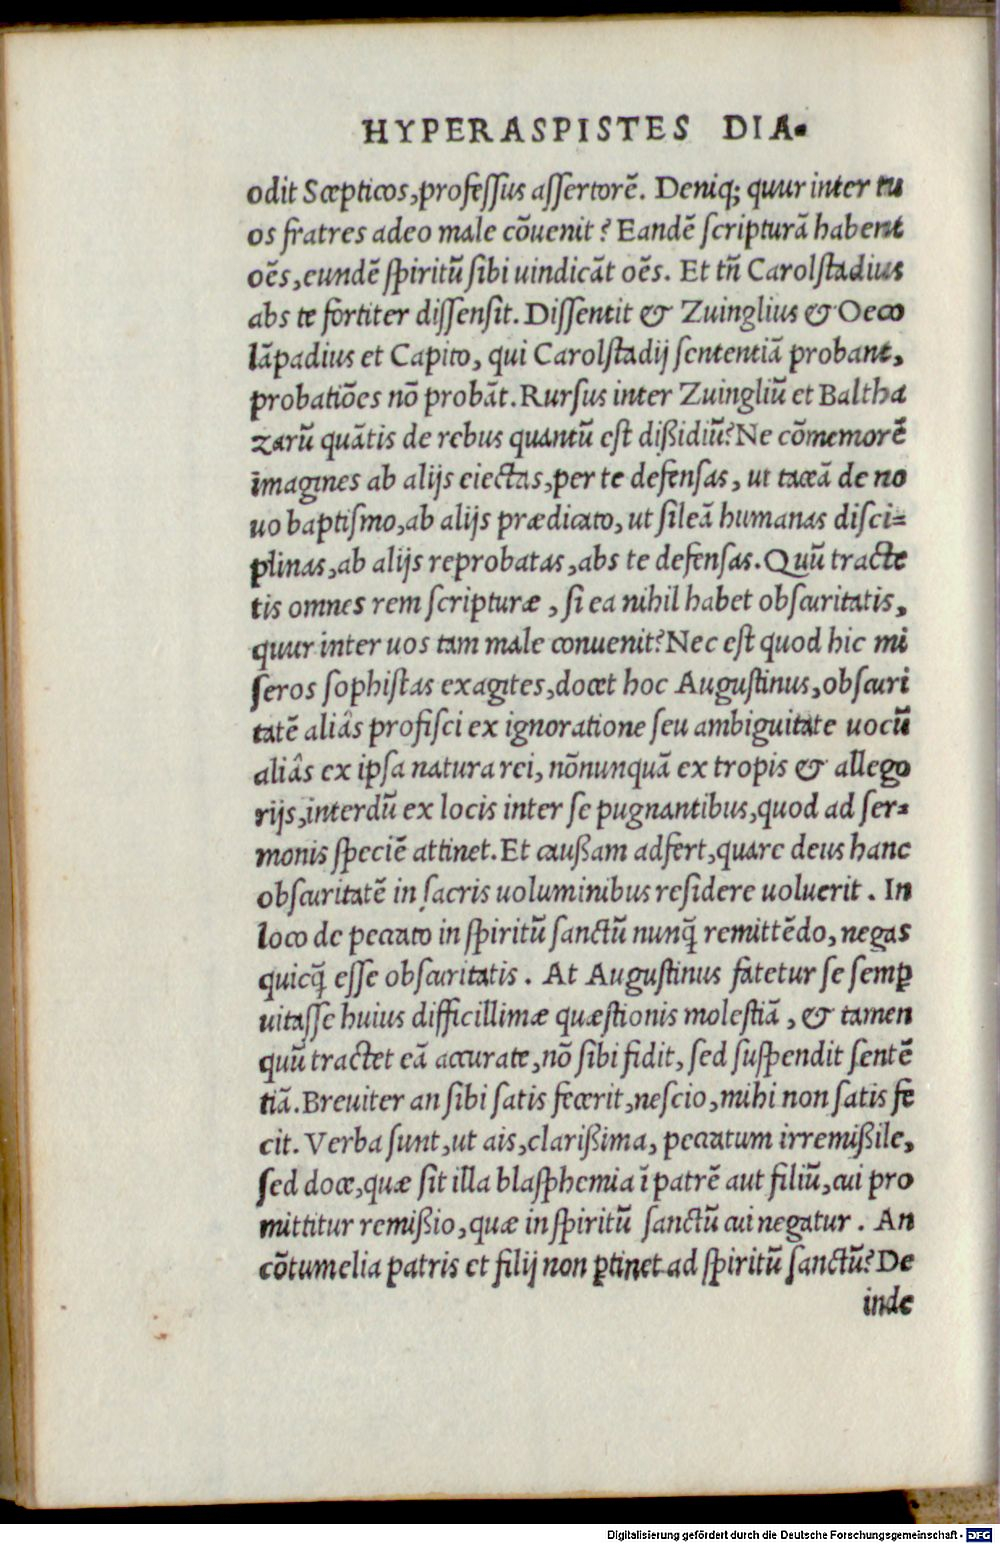 HYPERASPISTES DIA-
odit Scepticos, professus assertorē. Deniq; quur inter tu
os fratres adeo male cōuenit? Eandē scripturā habent
oēs, eundē spiritū sibi uindicāt oēs. Et tñ Carolstadius
abs te fortiter dissensit. Dissentit & Zuinglius & Oeco
lāpadius et Capito, qui Carolstadij sententiā probant,
probatiōes nō probāt. Rursus inter Zuingliū et Baltha
zarū quātis de rebus quantū est dißidiū? Ne cōmemorē
imagines ab alijs eiectas, per te defensas, ut taceā de no
uo baptismo, ab alijs prædicato, ut sileā humanas disci=
plinas, ab alijs reprobatas, abs te defensas. Quū tracte
tis omnes rem scripturæ, si ea nihil habet obscuritatis,
quur inter uos tam male conuenit? Nec est quod hic mi
seros sophistas exagites, docet hoc Augustinus, obscuri
tatē aliâs profisci ex ignoratione seu ambiguitate uocū
aliâs ex ipsa natura rei, nōnunquā ex tropis & allego
rijs, interdū ex locis inter se pugnantibus, quod ad ser=
monis speciē attinet. Et caußam adfert, quare deus hanc
obscuritatē in sacris uoluminibus residere uoluerit. In
loco de peccato in spiritū sanctū nunq̄ remittēdo, negas
quicq̄ esse obscuritatis. At Augustinus fatetur se semꝑ
uitasse huius difficillimæ quæstionis molestiā, & tamen
quū tractet eā accurate, nō sibi fidit, sed suspendit sentē
tiā. Breuiter an sibi satis fecerit, nescio, mihi non satis fe
cit. Verba sunt, ut ais, clarißima, peccatum irremißile,
sed doce, quæ sit illa blasphemia ī patrē aut filiū, cui pro
mittitur remißio, quæ in spiritū sanctū cui negatur. An
cōtumelia patris et filij non ꝑtinet ad spiritū sanctū? De
inde
Digitalisierung gefördert durch die Deutsche Forschungsgemeinschaft - DFG